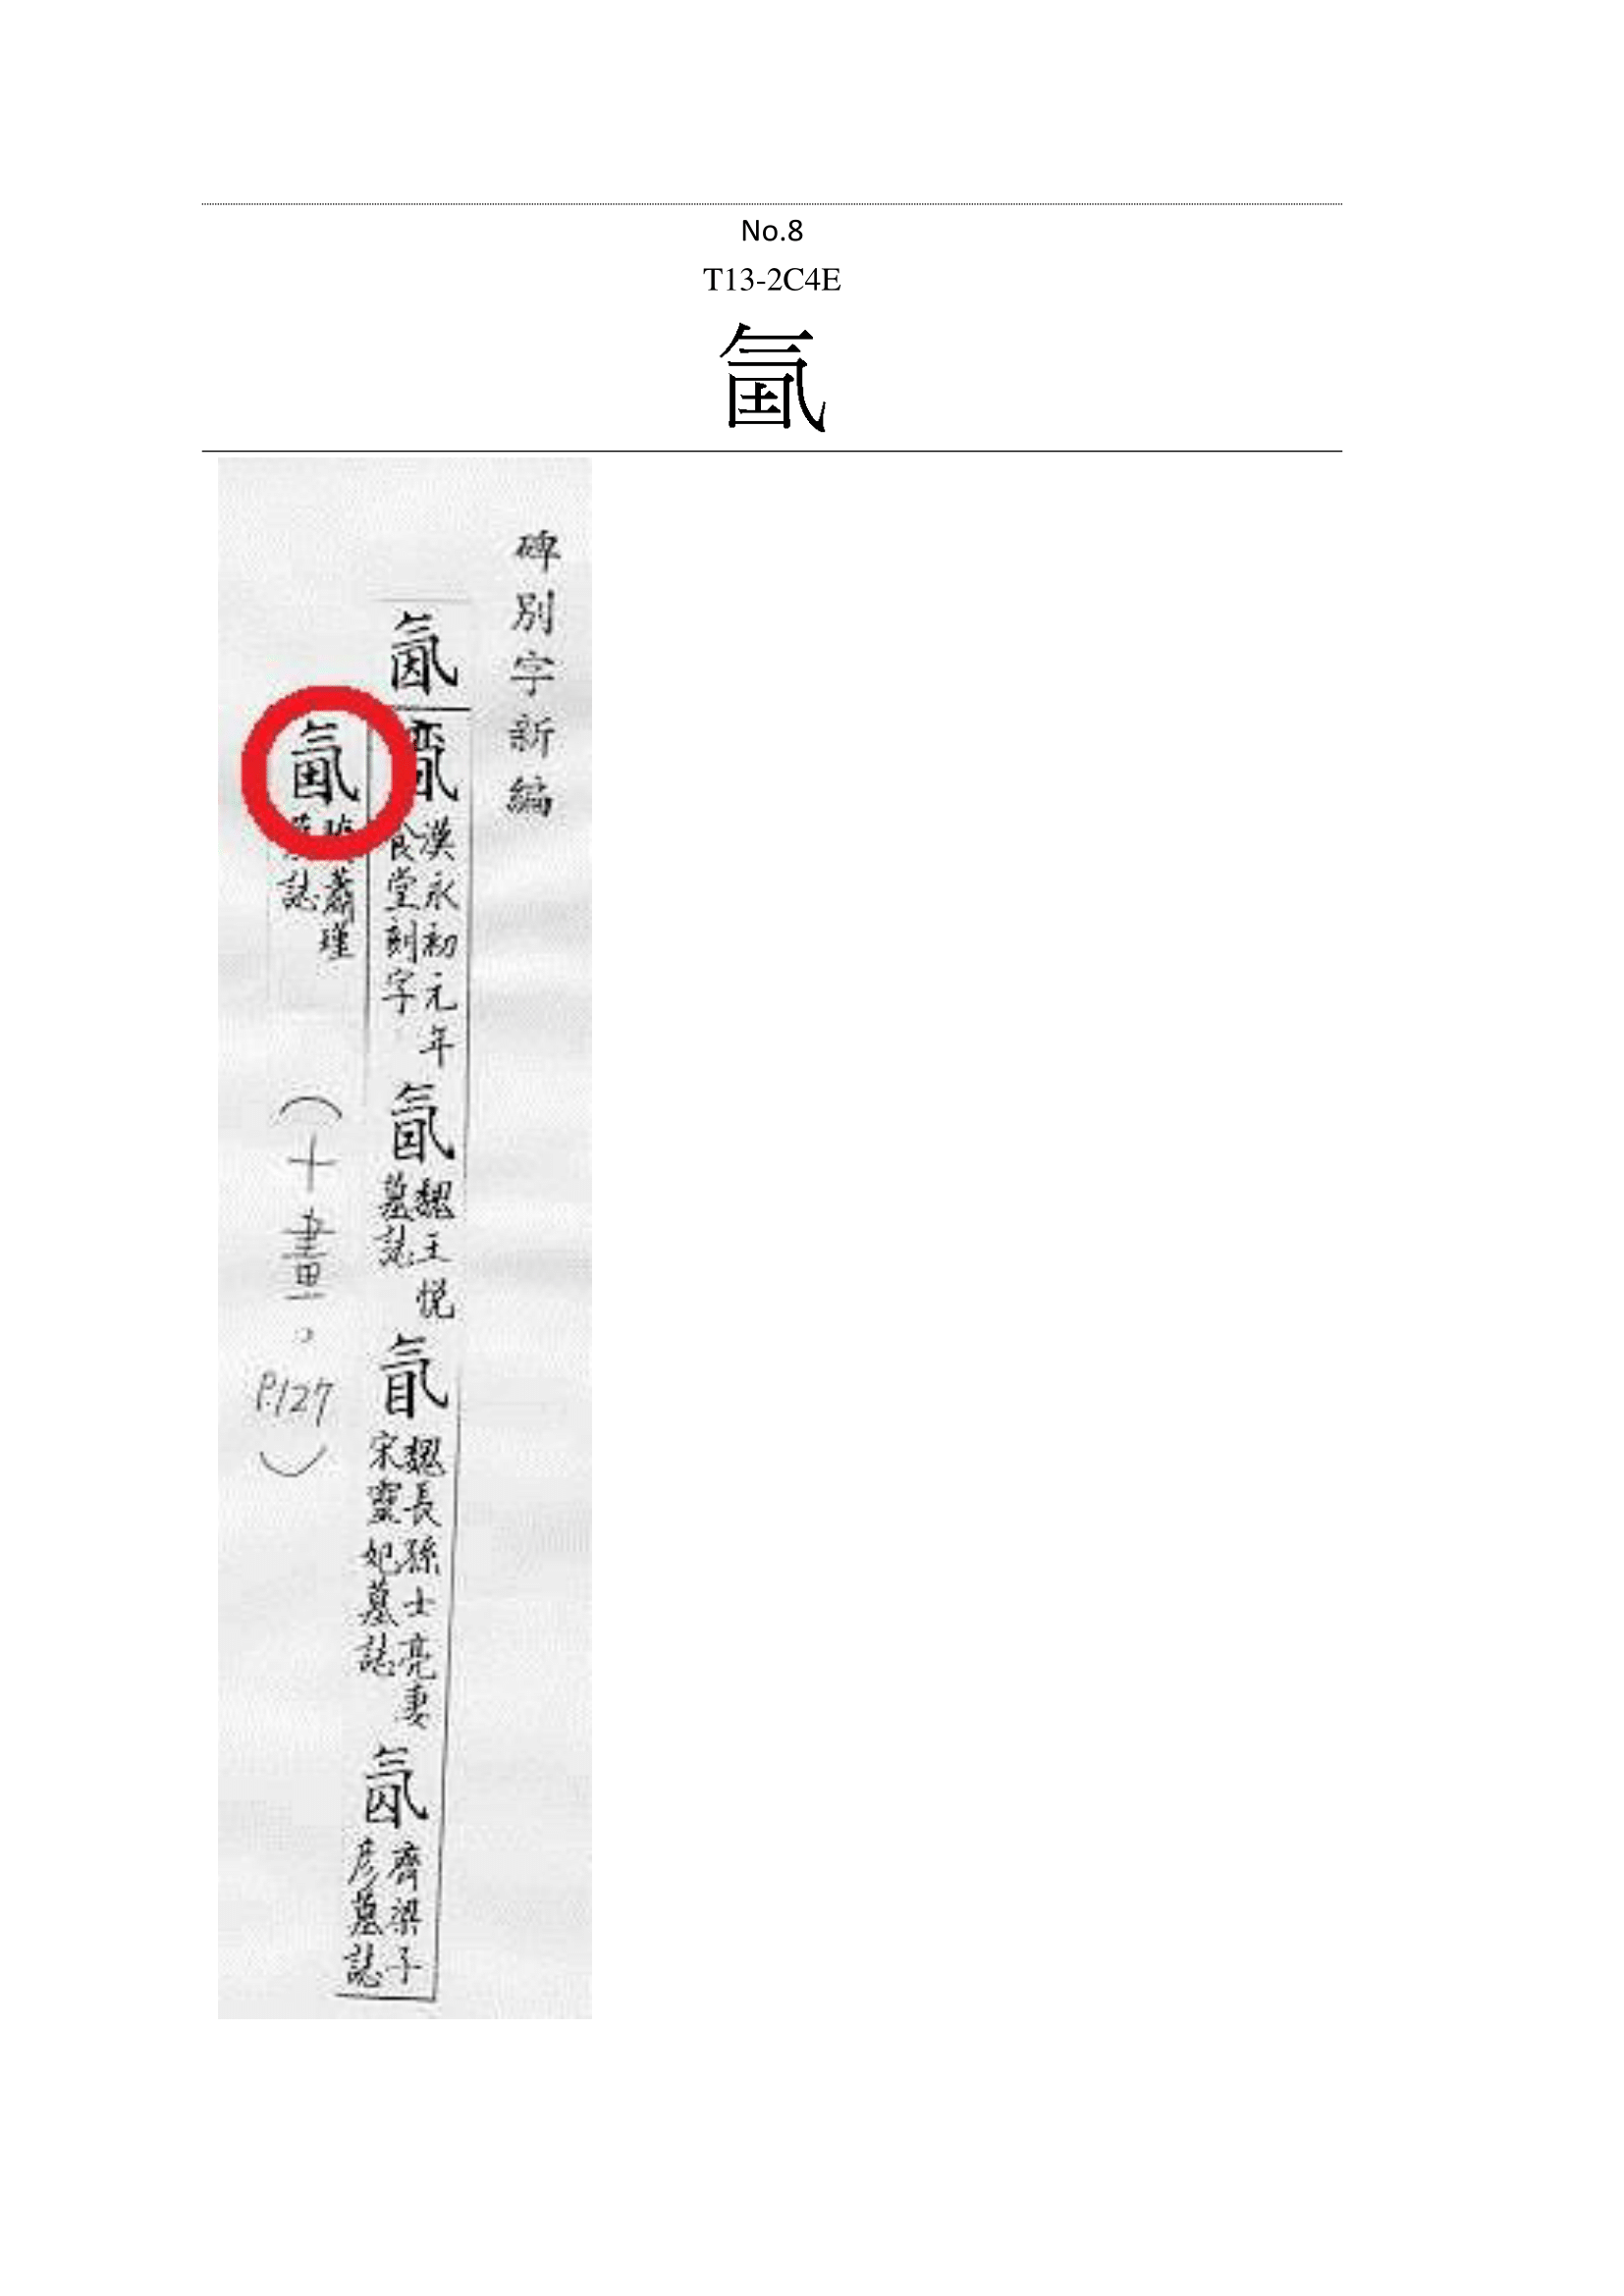 No.8
T13-2C4E
碑別字新編
氤
漢永初元年
食堂刻字
魏王悦
墓誌
魏長孫士亮妻
宋靈妃墓誌
齊梁子
彦墓誌
蕭瑾
誌
（十畫。P.127）